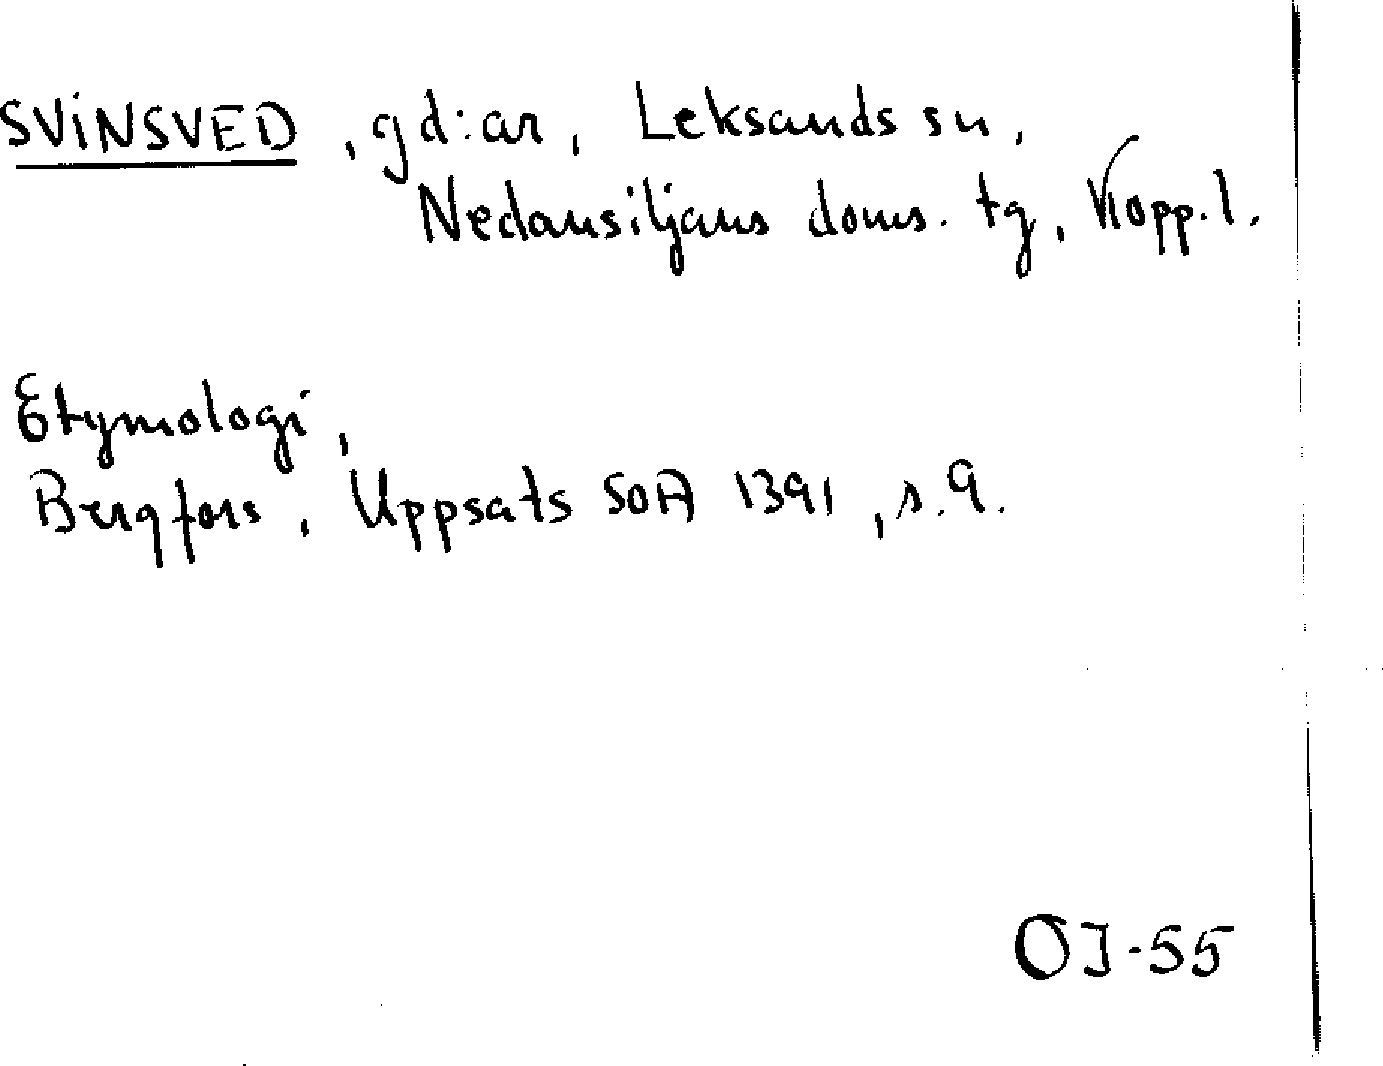 SVINSVED, gd:ar, Leksands sn,
Nedansiljans doms. tg, Kopp. l.
Etymologi,
Bergfors, Uppsats SOA 1391, s. 9.
OJ-55